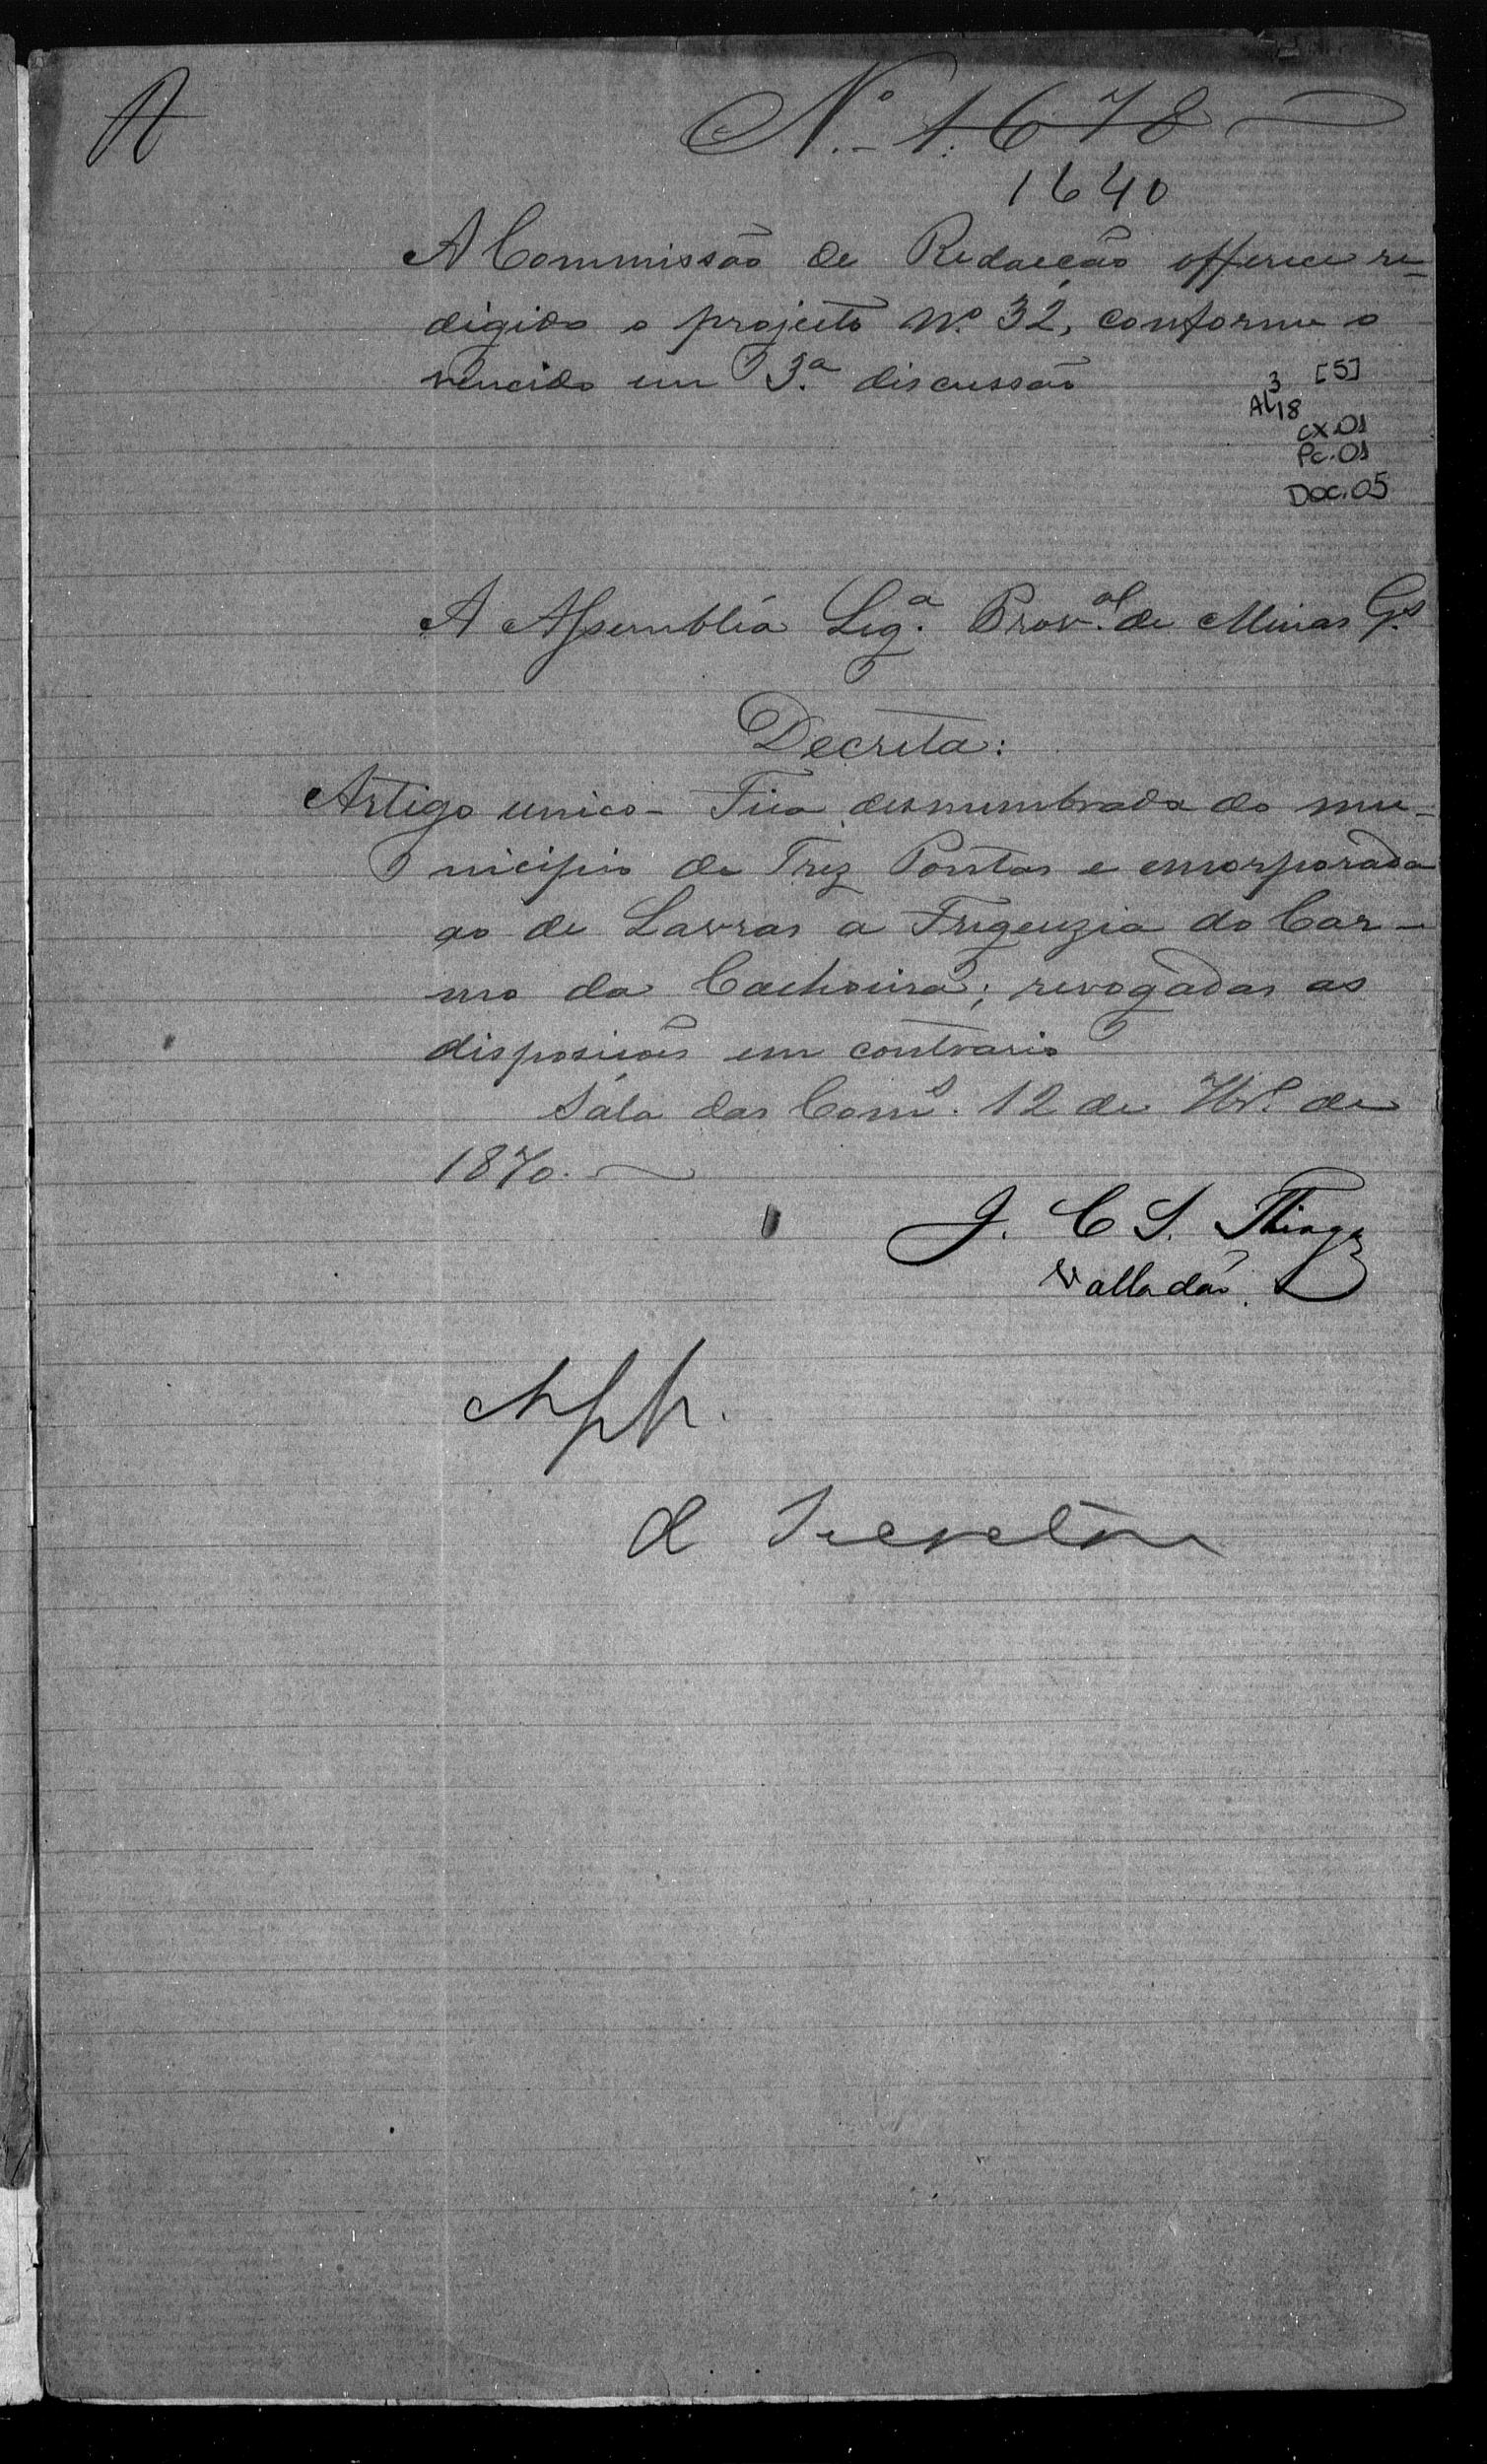 A
Nº. 1.678
1640
A Commissão de Redacção offerece re-
digido o projecto Nº 32, conforme o
vencido em 3.ª discussão
3 [5]
AL 18
CX.01
Pc.01
Doc.05
A Assembléa Leg.ª Prov.al de Minas G.s
Decreta:
Artigo unico - Fica desmembrada do mu-
nicipio de Trez Pontas e encorporada
ao de Lavras a Freguezia do Car-
mo da Cachoeira; revogadas as
disposições em contrario
Sala das Com.s 12 de 7br.º de
1870.
J. C S. Thiago
Valladão
App.